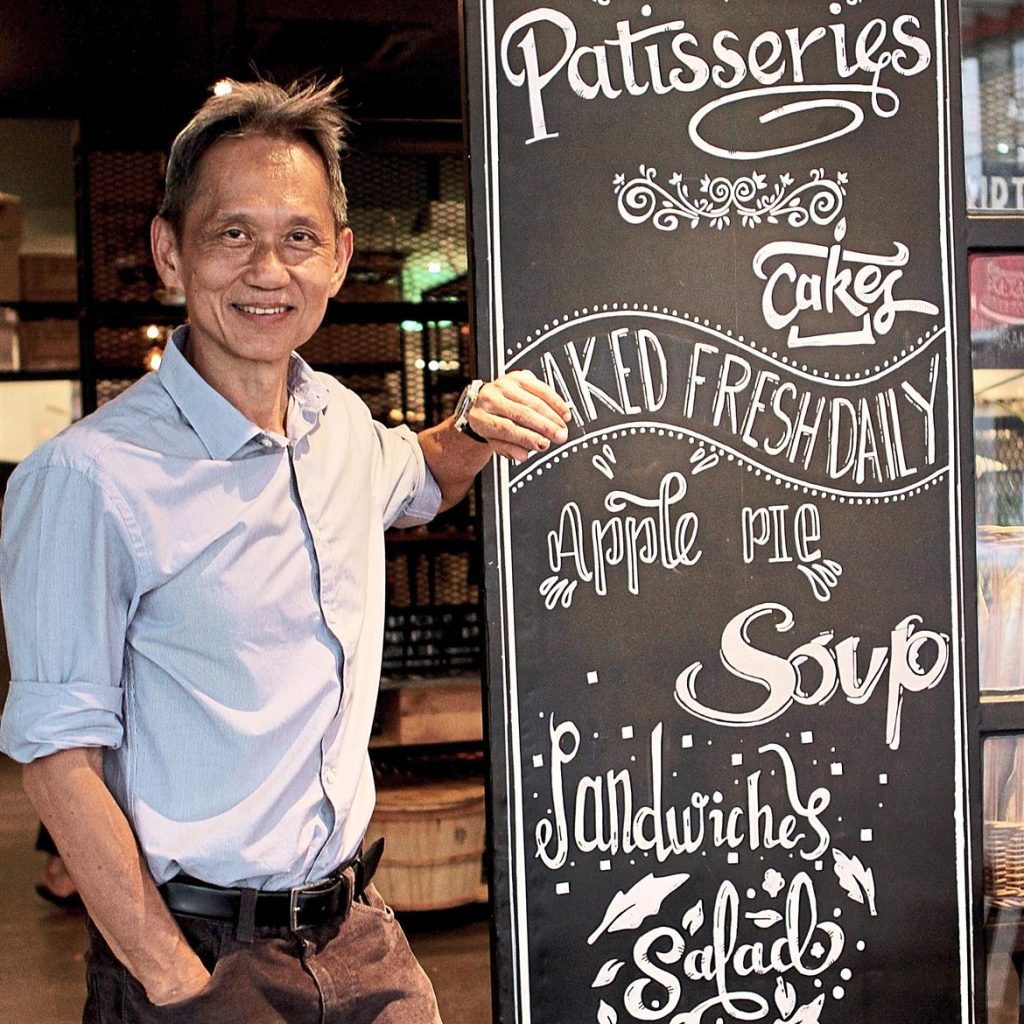 Patisseries
Cakes
BAKED FRESH DAILY
Apple PIE
Soup
Sandwiches
Salad